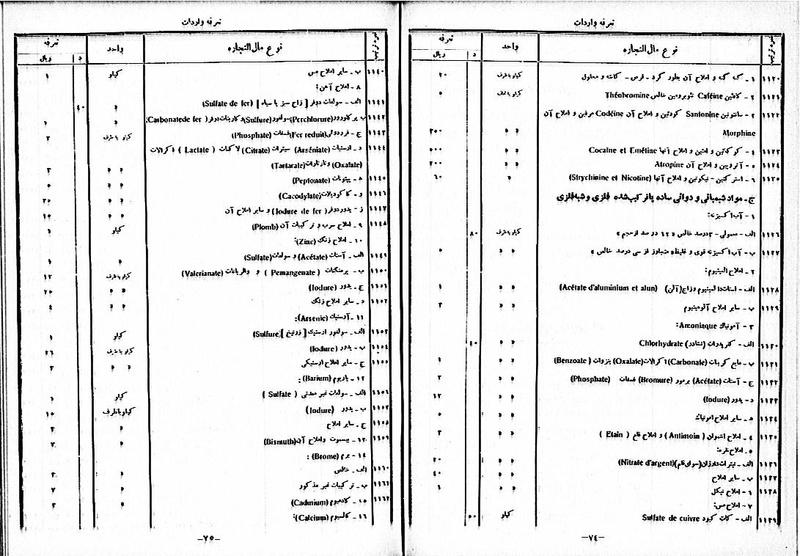 تعرفه واردات
شماره ترتیب
نوع مال‌التجاره
واحد
تعرفه
ریال
د
۱۱۲۰ ۱ ـ کک و املاح آن بطور گرد ـ قرص ـ کاشه و محلول کیلو با ظرف ۲۰
۱۱۲۱ ۲ ـ کافئین Caféine تئوبرومین خالص Théobromine کیلو با ظرف ۵
۱۱۲۲ ۳ ـ سانتونین Santonine کودئین و املاح آن Codéine مرفین و املاح آن
Morphine » » ۳۰۰
۱۱۲۳ ٤ ـ کوکائین و امتین و املاح آنها Cocaine et Emétine » » ۵۰۰
۱۱۲٤ ۵ ـ آتروپین و املاح آن Atropine » » ۲۰۰
۱۱۲۵ ٦ ـ استرکنین ـ نیکوتین و املاح آنها (Strychinine et Nicotine) » ٦۰
ج ـ مواد شیمیائی و دوائی ساده یا ترکیب‌شده فلزی و شبه‌فلزی
۱ ـ آب اکسیژنه:
۱۱۲٦ الف ـ معمولی ـ ۳درصد خالص «۱۲ درصد از حجم» کیلو با ظرف ۸۰
۱۱۲۷ ب ـ آب اکسیژنه قوی و غلیظ «متجاوز از سی درصد خالص» » » ۵
۲ ـ املاح آلمینیوم:
۱۱۲۸ الف ـ استات دالمینیوم و زاج (آلن) (Acétate d'aluminium et alun) » » ۱
۱۱۲۹ ب ـ سایر املاح آلومینیوم » » ۳
۳ ـ آمونیاک Amoniaque:
۱۱۳۰ الف ـ کلریدرات (نشادر) Chlorhydrate » » ٤۰
۱۱۳۱ ب ـ مایع کربنات (Carbonale) اکزالات (Oxalate) بنزوات (Benzoate) » » ۱
۱۱۳۲ ج ـ آستات (Acétate) برمور (Bromure) فسفات (Phosphate) » » ۳
۱۱۳۳ د ـ یدور (Iodure) » » ۱۲
۱۱۳٤ ه ـ سایر املاح امونیاک » » ۵
۱۱۳۵ ٤ ـ املاح انتیموان (Antimoin) و املاح قلع (Etain) » » ۳
۵ ـ املاح نقره:
۱۱۳٦ الف ـ نیترات دارژان (سوای قلم) (Nitrate d'argent) » » ۲۰
۱۱۳۷ ب ـ سایر املاح » » ٤۰
۱۱۳۸ ٦ ـ املاح نیکل » » ۱
۷ ـ املاح مس:
۱۱۳۹ الف ـ کات کبود Sulfate de cuivre کیلو ۵۰
ـ۷٤ـ
تعرفه واردات
نوع مال‌التجاره
واحد
تعرفه
ریال
د
۱۱٤۰ ب ـ سایر املاح مس کیلو ۱
۸ ـ املاح آهن:
۱۱٤۱ الف ـ سولفات دوفر [زاج سبز یا سیاه] (Sulfate de fer) » ٤۰
۱۱٤۲ ب ـ پرکلرور (Perchlorure) سولفور (Sulfure) کاربنات دوفر (Carbonatede fer) » ۱
۱۱٤۳ ج ـ فر ردوئی (Fer reduit) فسفات (Phosphate) کیلو با ظرف ۲
۱۱٤٤ د ـ ارسنیات (Arséniate) سیترات (Citrate) لاکتات (Lactate) اکزالات
(Oxalate) و تارتارات (Tartarate) » » ۳
۱۱٤۵ ه ـ پپتونات (Peptonate) » »
و ـ کاکودیلات (Cacodylate) » » ۲۰
ز ـ یدور دوفر (Iodure de fer) و سایر املاح آن » » ۱۵
۹ ـ املاح سرب و ترکیبات آن (Plomb) کیلو ۱
۱۰ ـ املاح زنک (Zinc):
۱۱٤۹ الف ـ آستات (Acétate) و سولفات (Sulfate) »
۱۱۵۰ ب ـ پرمنگنات (Pemangenate) و والریانات (Valerianate) کیلو با ظرف ۱۲
۱۱۵۱ ج ـ یدور (Iodure) » » ۲۰
۱۱۵۲ د ـ سایر املاح زنک » »
۱۱ ـ آرسنیک (Arsenic):
۱۱۵۳ الف ـ سولفور ارسنیک [زرنیخ] (Sulfure) کیلو ۱
۱۱۵٤ ب ـ یدور (Iodure) کیلو با ظرف ۲٦
۱۱۵۵ ج ـ سایر املاح ارسنیکی » » ۳
۱۲ ـ باریوم (Barium):
الف ـ سولفات غیر معدنی (Sulfate) کیلو ۱
ب ـ یدور (Iodure) کیلو با ظرف ۱۵
ج ـ سایر املاح »
۱۱۵۹ بیسموت و املاح آن (Bismuth) » ۳
۱٤ ـ برم (Brome):
۱۱٦۰ الف ـ خالص » ۳
۱۱٦۱ ب ـ ترکیبات غیر مذکور »
۱۱٦۲ ۱۵ ـ کادمیوم (Cadmium) » ۳
۱٦ ـ کالسیوم (Calcium):
ـ۷۵ـ